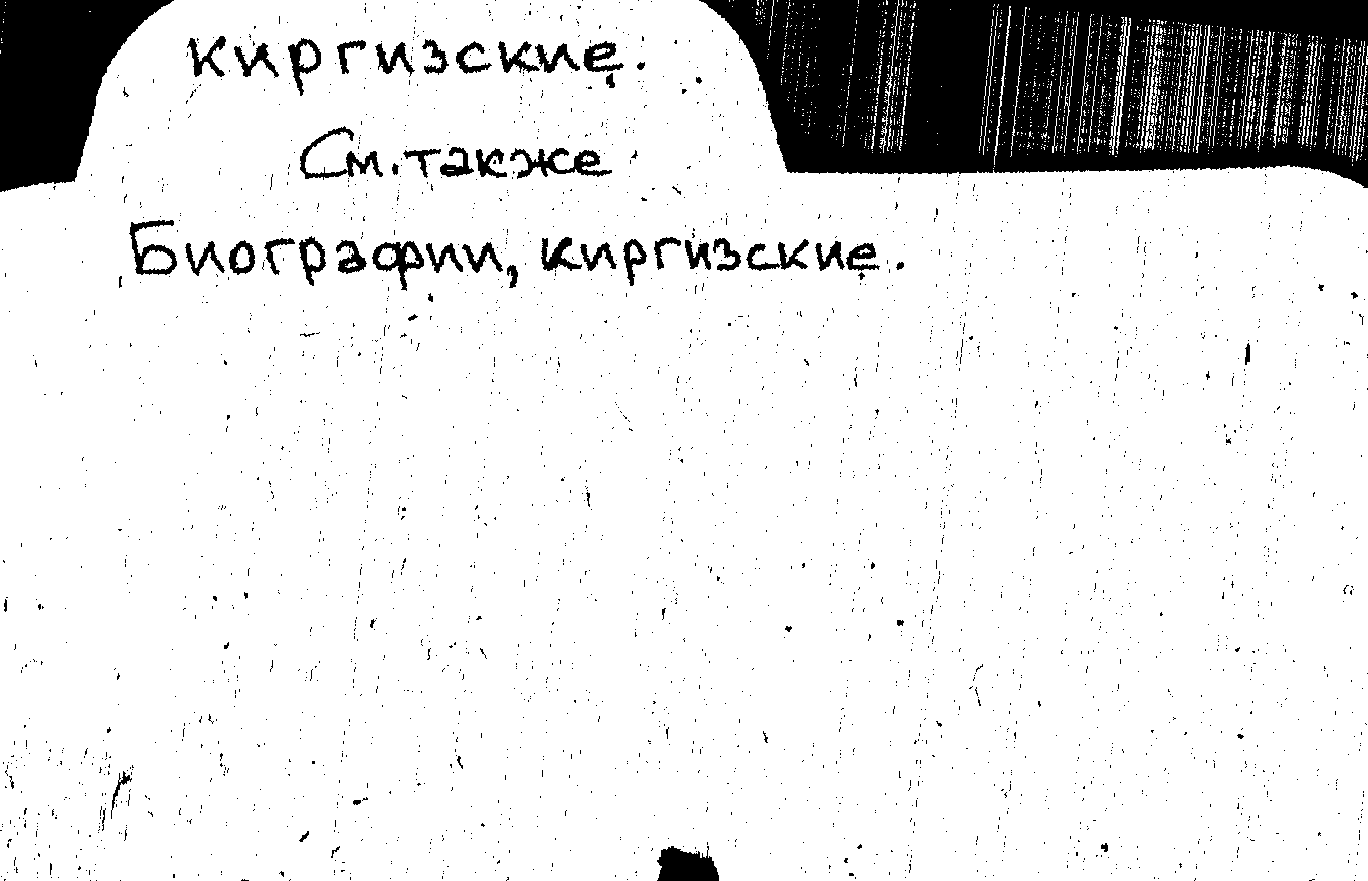 киргизские.
См. также
Биографии, киргизские.